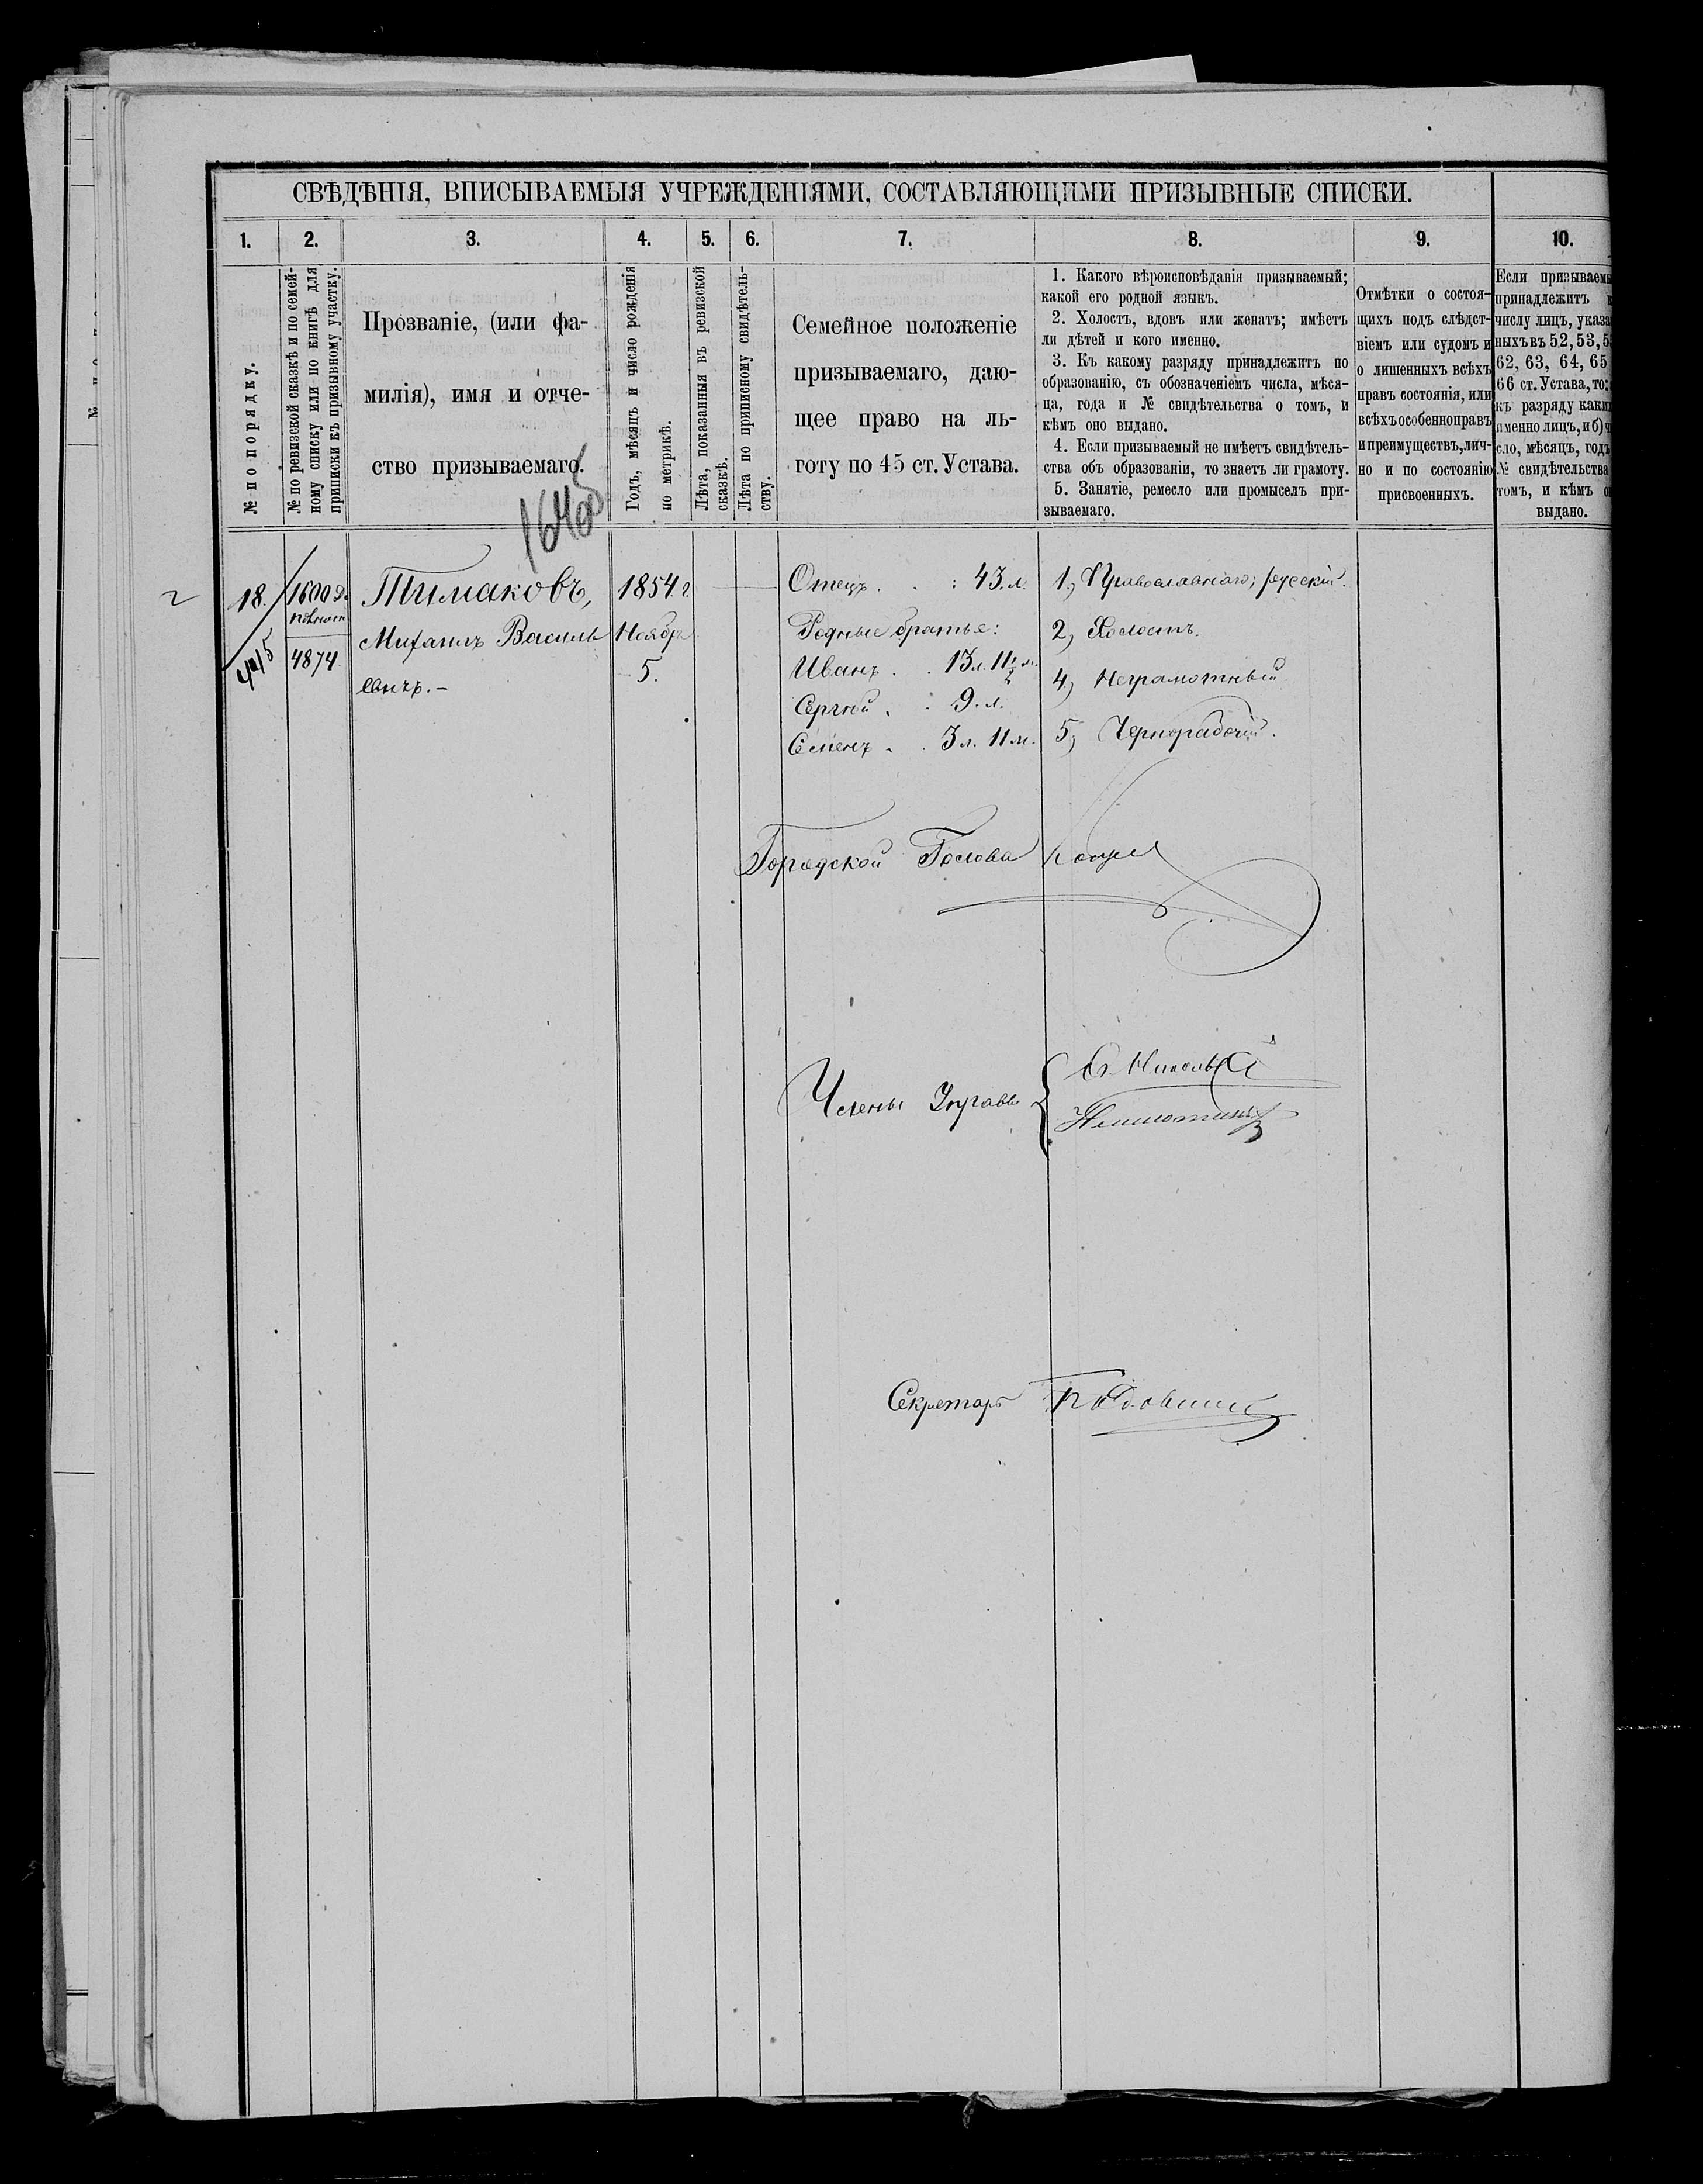 СВѢДѢНІЯ, ВПИСЫВАЕМЫЯ УЧРЕЖДЕНІЯМИ, СОСТАВЛЯЮЩИМИ ПРИЗЫВНЫЕ СПИСКИ.
1.
2.
3.
4.
5.
6.
7.
8.
9.
10.
№ по порядку.
№ по ревизской сказкѣ и по семей-
ному списку или по книгѣ для
приписки къ призывному участку.
Прозваніе, (или фа-
милія), имя и отче-
ство призываемаго.
Годъ, мѣсяцъ и число рожденія
по метрикѣ.
Лѣта, показанныя въ ревизской
сказкѣ.
Лѣта по приписному свидѣтель-
ству.
Семейное положеніе
призываемаго, даю-
щее право на ль-
готу по 45 ст. Устава.
1. Какого вѣроисповѣданія призываемый;
какой его родной языкъ.
2. Холостъ, вдовъ или женатъ; имѣетъ
ли дѣтей и кого именно.
3. Къ какому разряду принадлежитъ по
образованію, съ обозначеніемъ числа, мѣся-
ца, года и № свидѣтельства о томъ, и
кѣмъ оно выдано.
4. Если призываемый не имѣетъ свидѣтель-
ства объ образованіи, то знаетъ ли грамоту.
5. Занятіе, ремесло или промыселъ при-
зываемаго.
Отмѣтки о состоя-
щихъ подъ слѣдст-
віемъ или судомъ и
о лишенныхъ всѣхъ
правъ состоянія, или
всѣхъ особенно правъ
и преимуществъ, лич-
но и по состоянію
присвоенныхъ.
Если призываемы
принадлежитъ
числу лицъ, указа
ныхъ въ 52, 53, 5
62, 63, 64, 65
66 ст. Устава, то:
къ разряду каки
именно лицъ, и б) ч
сло, мѣсяцъ, годъ
№ свидѣтельства
томъ, и кѣмъ о
выдано.
18.
4874
Тимаковъ,
Михаилъ Василь
евичъ.-
1854 г.
Ноябр
5.
Отецъ . . : 43. л.
Родные братья:
Иванъ . . 13 л. 11½ м.
Сергѣй . : 9. л.
Семенъ . . 3 л. 11 м.
1, Православнаго; русскій.
2, Холостъ.
4, Неграмотный
5, Чернорабочій.
Городской Голова
Члены Управы
Секретарь